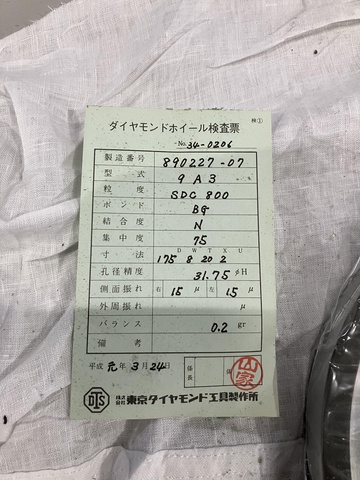 検①
ダイヤモンドホイール検査票
No. 34-0206
製造番号 890227-07
型式 9A3
粒度 SDC 800
ボンド BG
結合度 N
集中度 75
D W T X U
寸法 175 8 20 2
孔径精度 31.75 φH
側面振れ 右 15 μ 左 15 μ
外周振れ μ
バランス 0.2 gr
備考
平成 元年 3月 24日 係長 係
DTS 株式会社 東京ダイヤモンド工具製作所